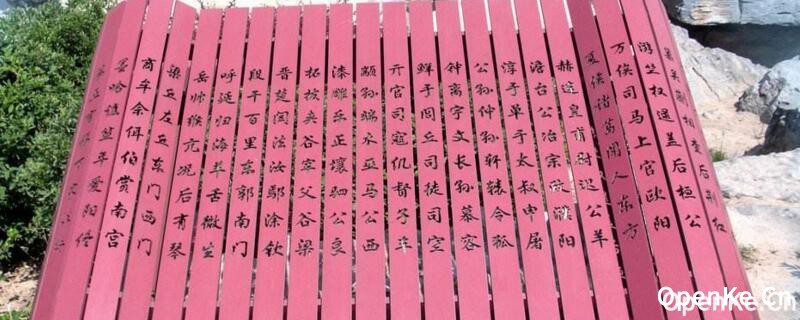 关蒯相查后荆红
游竺权逯盖后桓公
万俟司马上官欧阳
夏侯诸葛闻人东方
赫连皇甫尉迟公羊
澹台公冶宗政濮阳
淳于单于太叔申屠
公孙仲孙轩辕令狐
钟离宇文长孙慕容
鲜于闾丘司徒司空
亓官司寇仉督子车
颛孙端木巫马公西
漆雕乐正壤驷公良
拓拔夹谷宰父谷梁
晋楚闫法汝鄢涂钦
段干百里东郭南门
呼延归海羊舌微生
岳帅缑亢况后有琴
梁丘左丘东门西门
商牟佘佴伯赏南宫
墨哈谯笪年爱阳佟
OpenKe.Cn
OpenKe.Cn